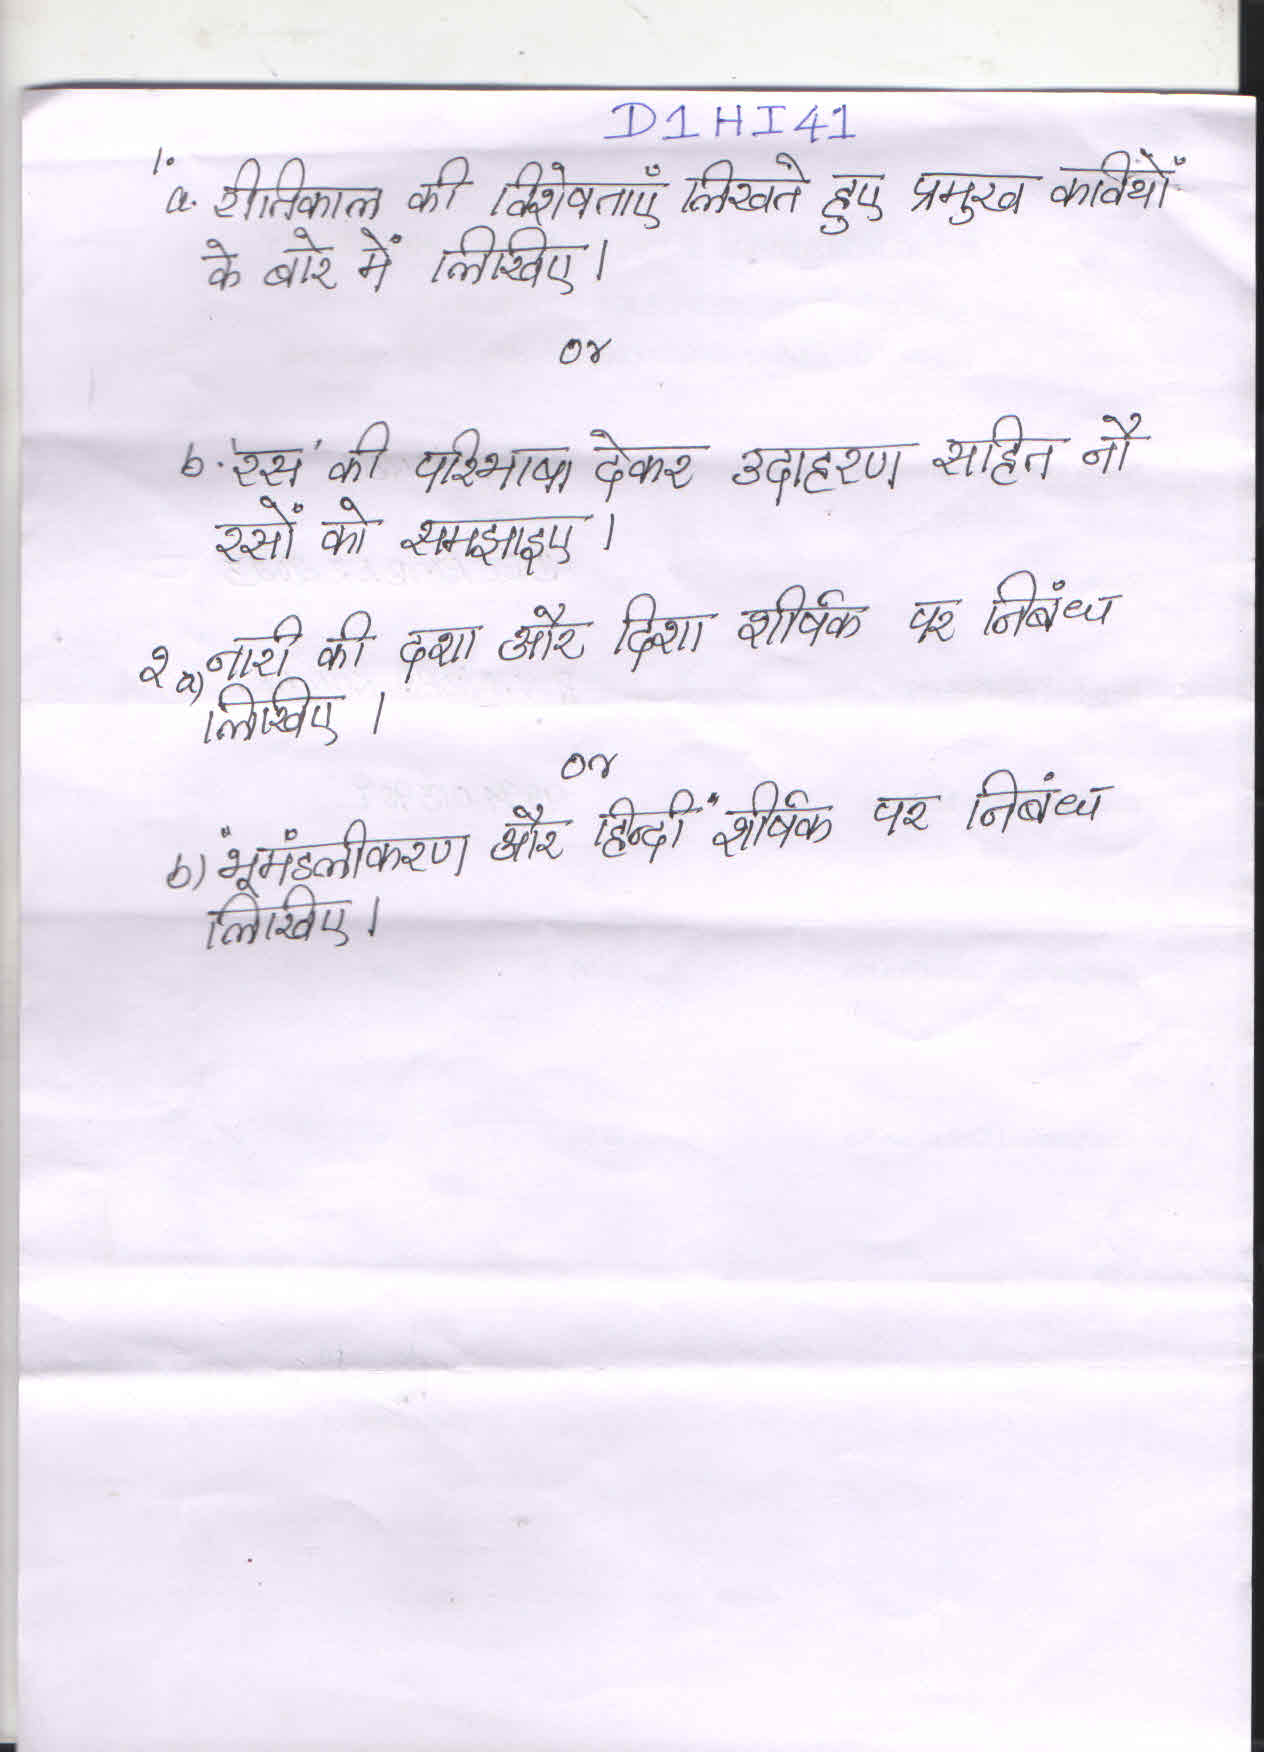 D1HI41
1.
a. रीतिकाल की विशेषताएँ लिखते हुए प्रमुख कवियों
के बारे में लिखिए।
or
b. 'रस' की परिभाषा देकर उदाहरण सहित नौ
रसों को समझाइए।
2 a) नारी की दशा और दिशा शीर्षक पर निबंध
लिखिए।
or
b) "भूमंडलीकरण और हिन्दी" शीर्षक पर निबंध
लिखिए।